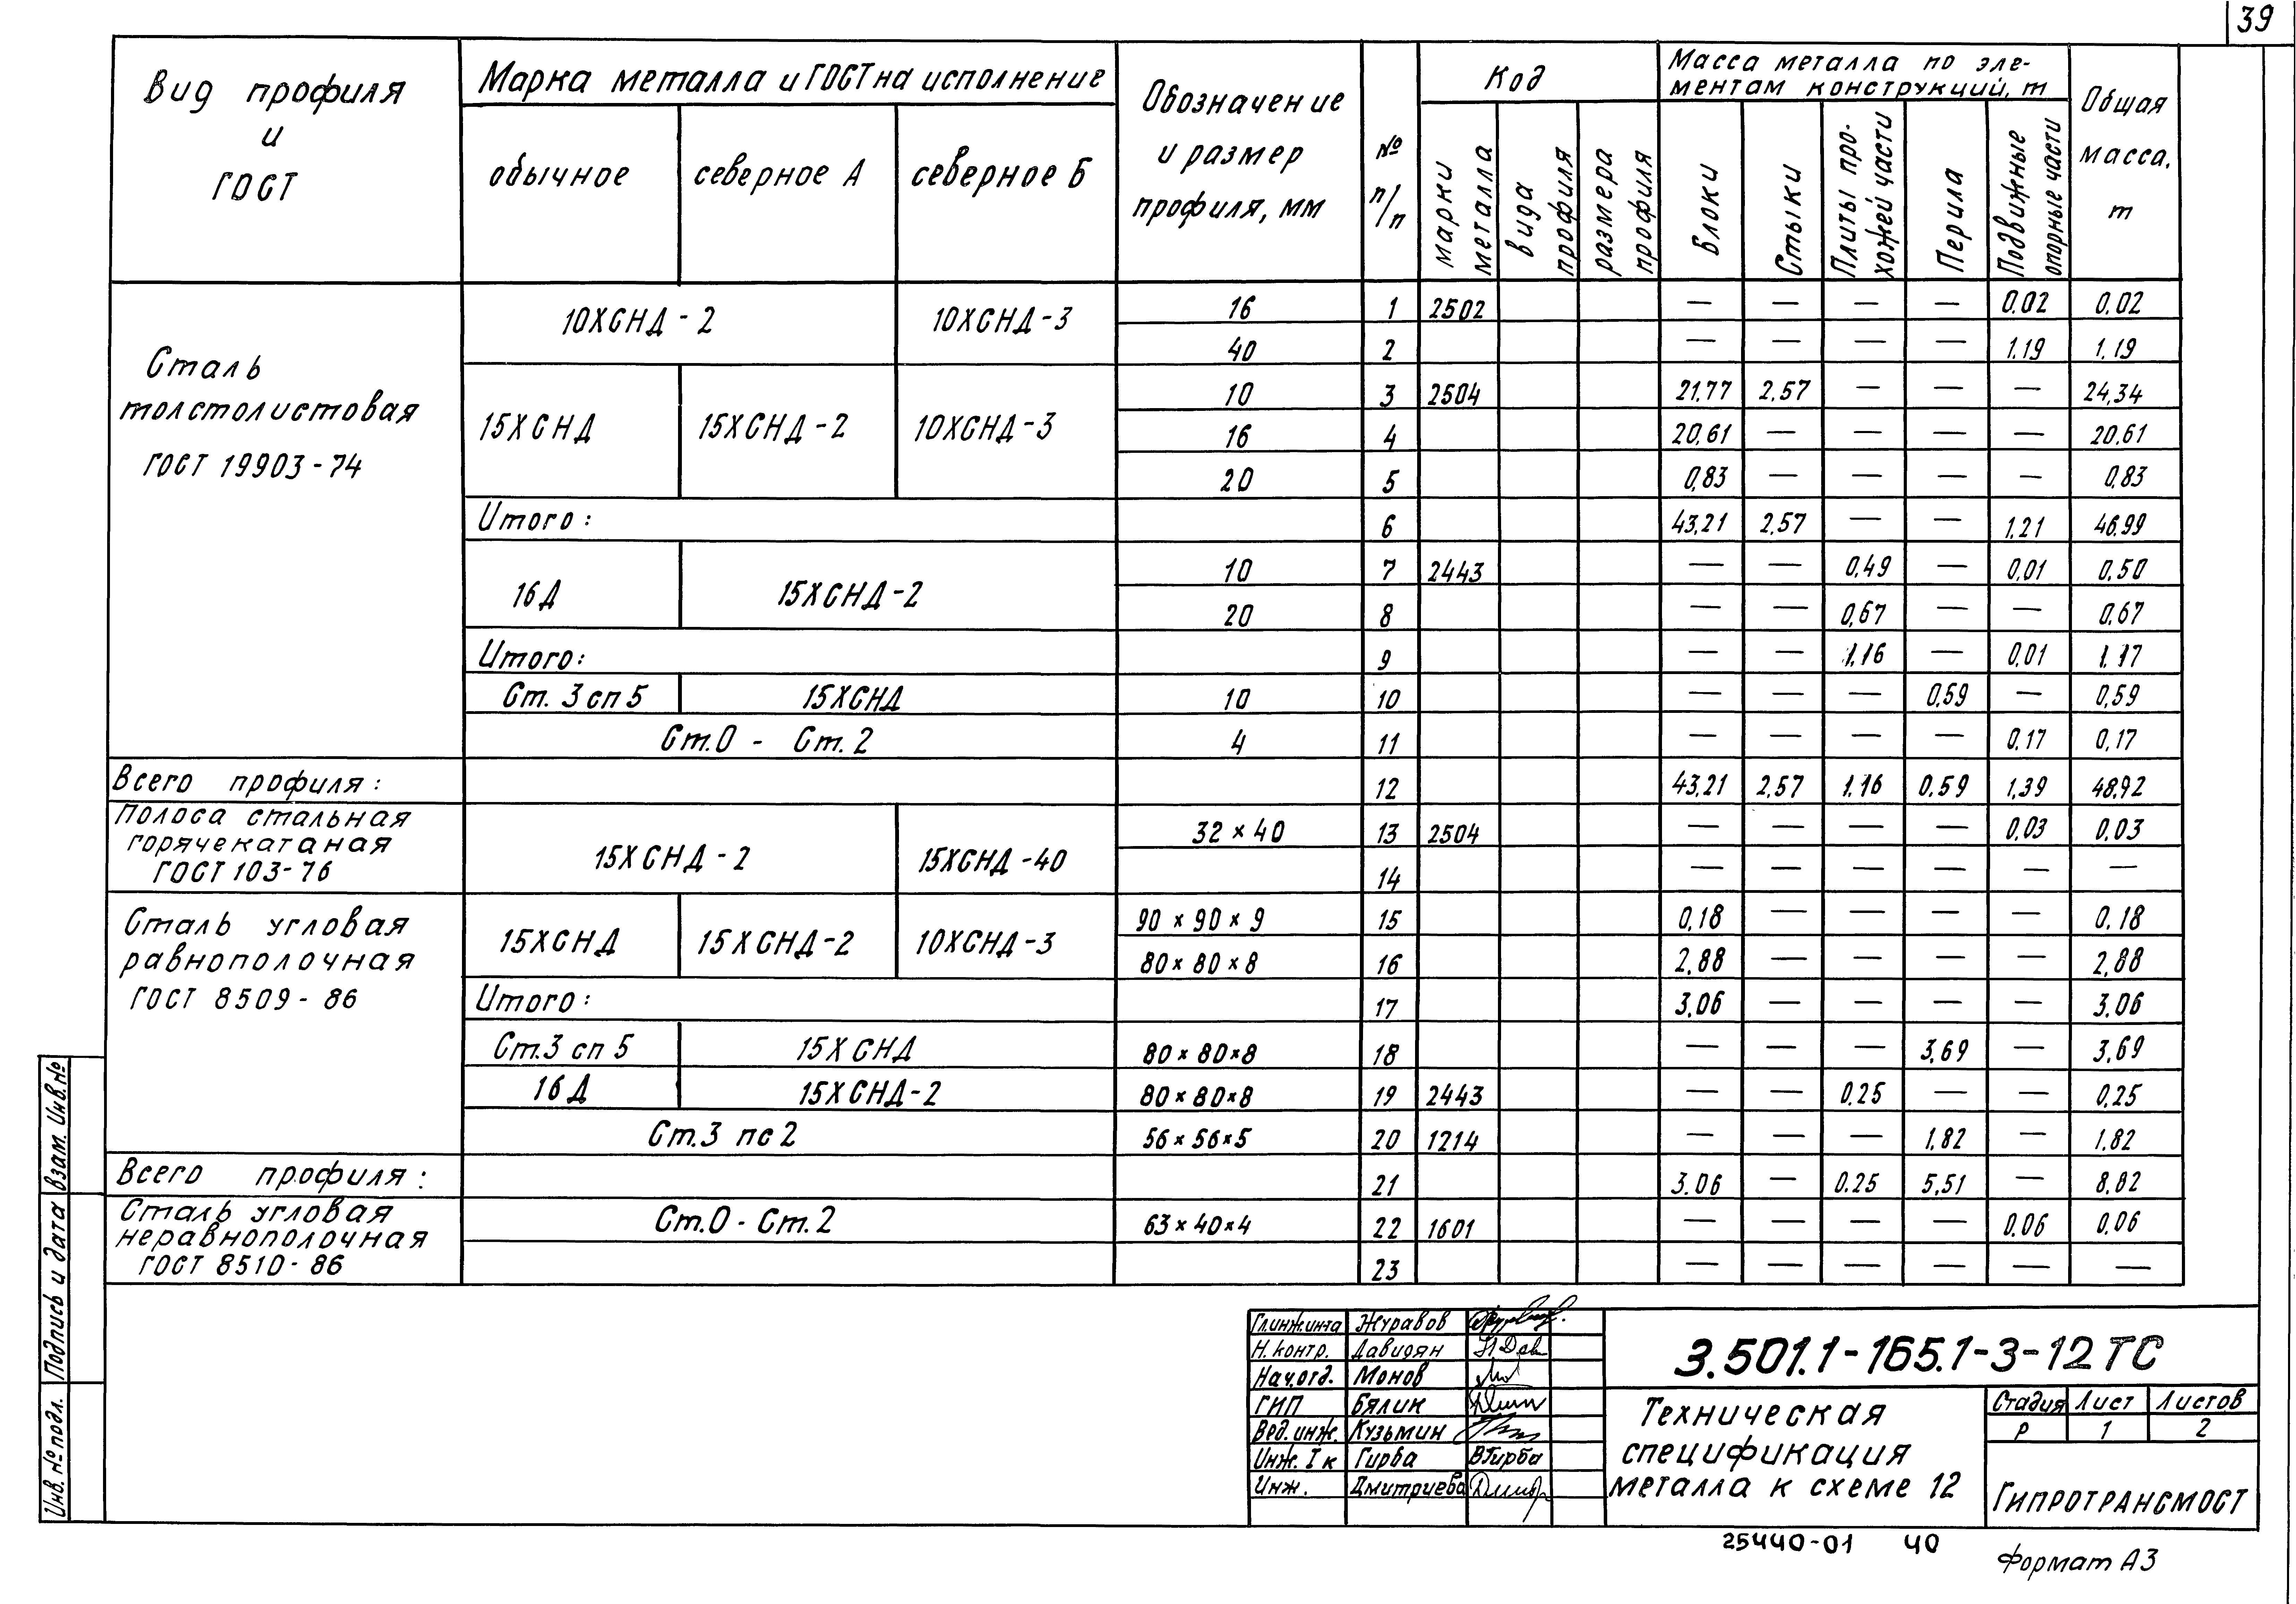 39
Вид профиля и ГОСТ
Марка металла и ГОСТ на исполнение
обычное
северное А
северное Б
Обозначение и размер профиля, мм
№ п/п
Код
марки металла
вида профиля
размера профиля
Масса металла по элементам конструкций, т
Блоки
Стыки
Плиты про-
хожей части
Перила
Подвижные
опорные части
Общая масса, т
Сталь
толстолистовая
ГОСТ 19903-74
10ХСНД-2
10ХСНД-3
16 1 2502 — — — — 0,02 0,02
40 2 — — — — 1,19 1,19
15ХСНД
15ХСНД-2
10ХСНД-3
10 3 2504 21,77 2,57 — — — 24,34
16 4 20,61 — — — — 20,61
20 5 0,83 — — — — 0,83
Итого: 6 43,21 2,57 — — 1,21 46,99
16Д
15ХСНД-2
10 7 2443 — — 0,49 — 0,01 0,50
20 8 — — 0,67 — — 0,67
Итого: 9 — — 1,16 — 0,01 1,17
Ст. 3 сп 5 15ХСНД 10 10 — — — 0,59 — 0,59
Ст.0 - Ст.2 4 11 — — — — 0,17 0,17
Всего профиля: 12 43,21 2,57 1,16 0,59 1,39 48,92
Полоса стальная
горячекатаная
ГОСТ 103-76
15ХСНД-2
15ХСНД-40
32 × 40 13 2504 — — — — 0,03 0,03
14 — — — — — —
Сталь угловая
равнополочная
ГОСТ 8509-86
15ХСНД
15ХСНД-2
10ХСНД-3
90 × 90 × 9 15 0,18 — — — — 0,18
80 × 80 × 8 16 2,88 — — — — 2,88
Итого: 17 3,06 — — — — 3,06
Ст.3 сп 5 15ХСНД 80 × 80 × 8 18 — — — 3,69 — 3,69
16Д 15ХСНД-2 80 × 80 × 8 19 2443 — — 0,25 — — 0,25
Ст.3 пс 2 56 × 56 × 5 20 1214 — — — 1,82 — 1,82
Всего профиля: 21 3.06 — 0.25 5,51 — 8,82
Сталь угловая
неравнополочная
ГОСТ 8510-86
Ст.0 - Ст.2 63 × 40 × 4 22 1601 — — — — 0.06 0,06
23 — — — — — —
Взам. Инв.№
Подпись и дата
Инв. № подл.
Гл.инж.ин-та Журавов
Н. контр. Давидян
Нач.отд. Монов
ГИП Бялик
Вед. инж. Кузьмин
Инж. I к Гирва ВГирва
Инж. Дмитриева
3.501.1-165.1-3-12 ТС
Техническая
спецификация
металла к схеме 12
Стадия Лист Листов
Р 1 2
ГИПРОТРАНСМОСТ
25440-01 40
Формат А3